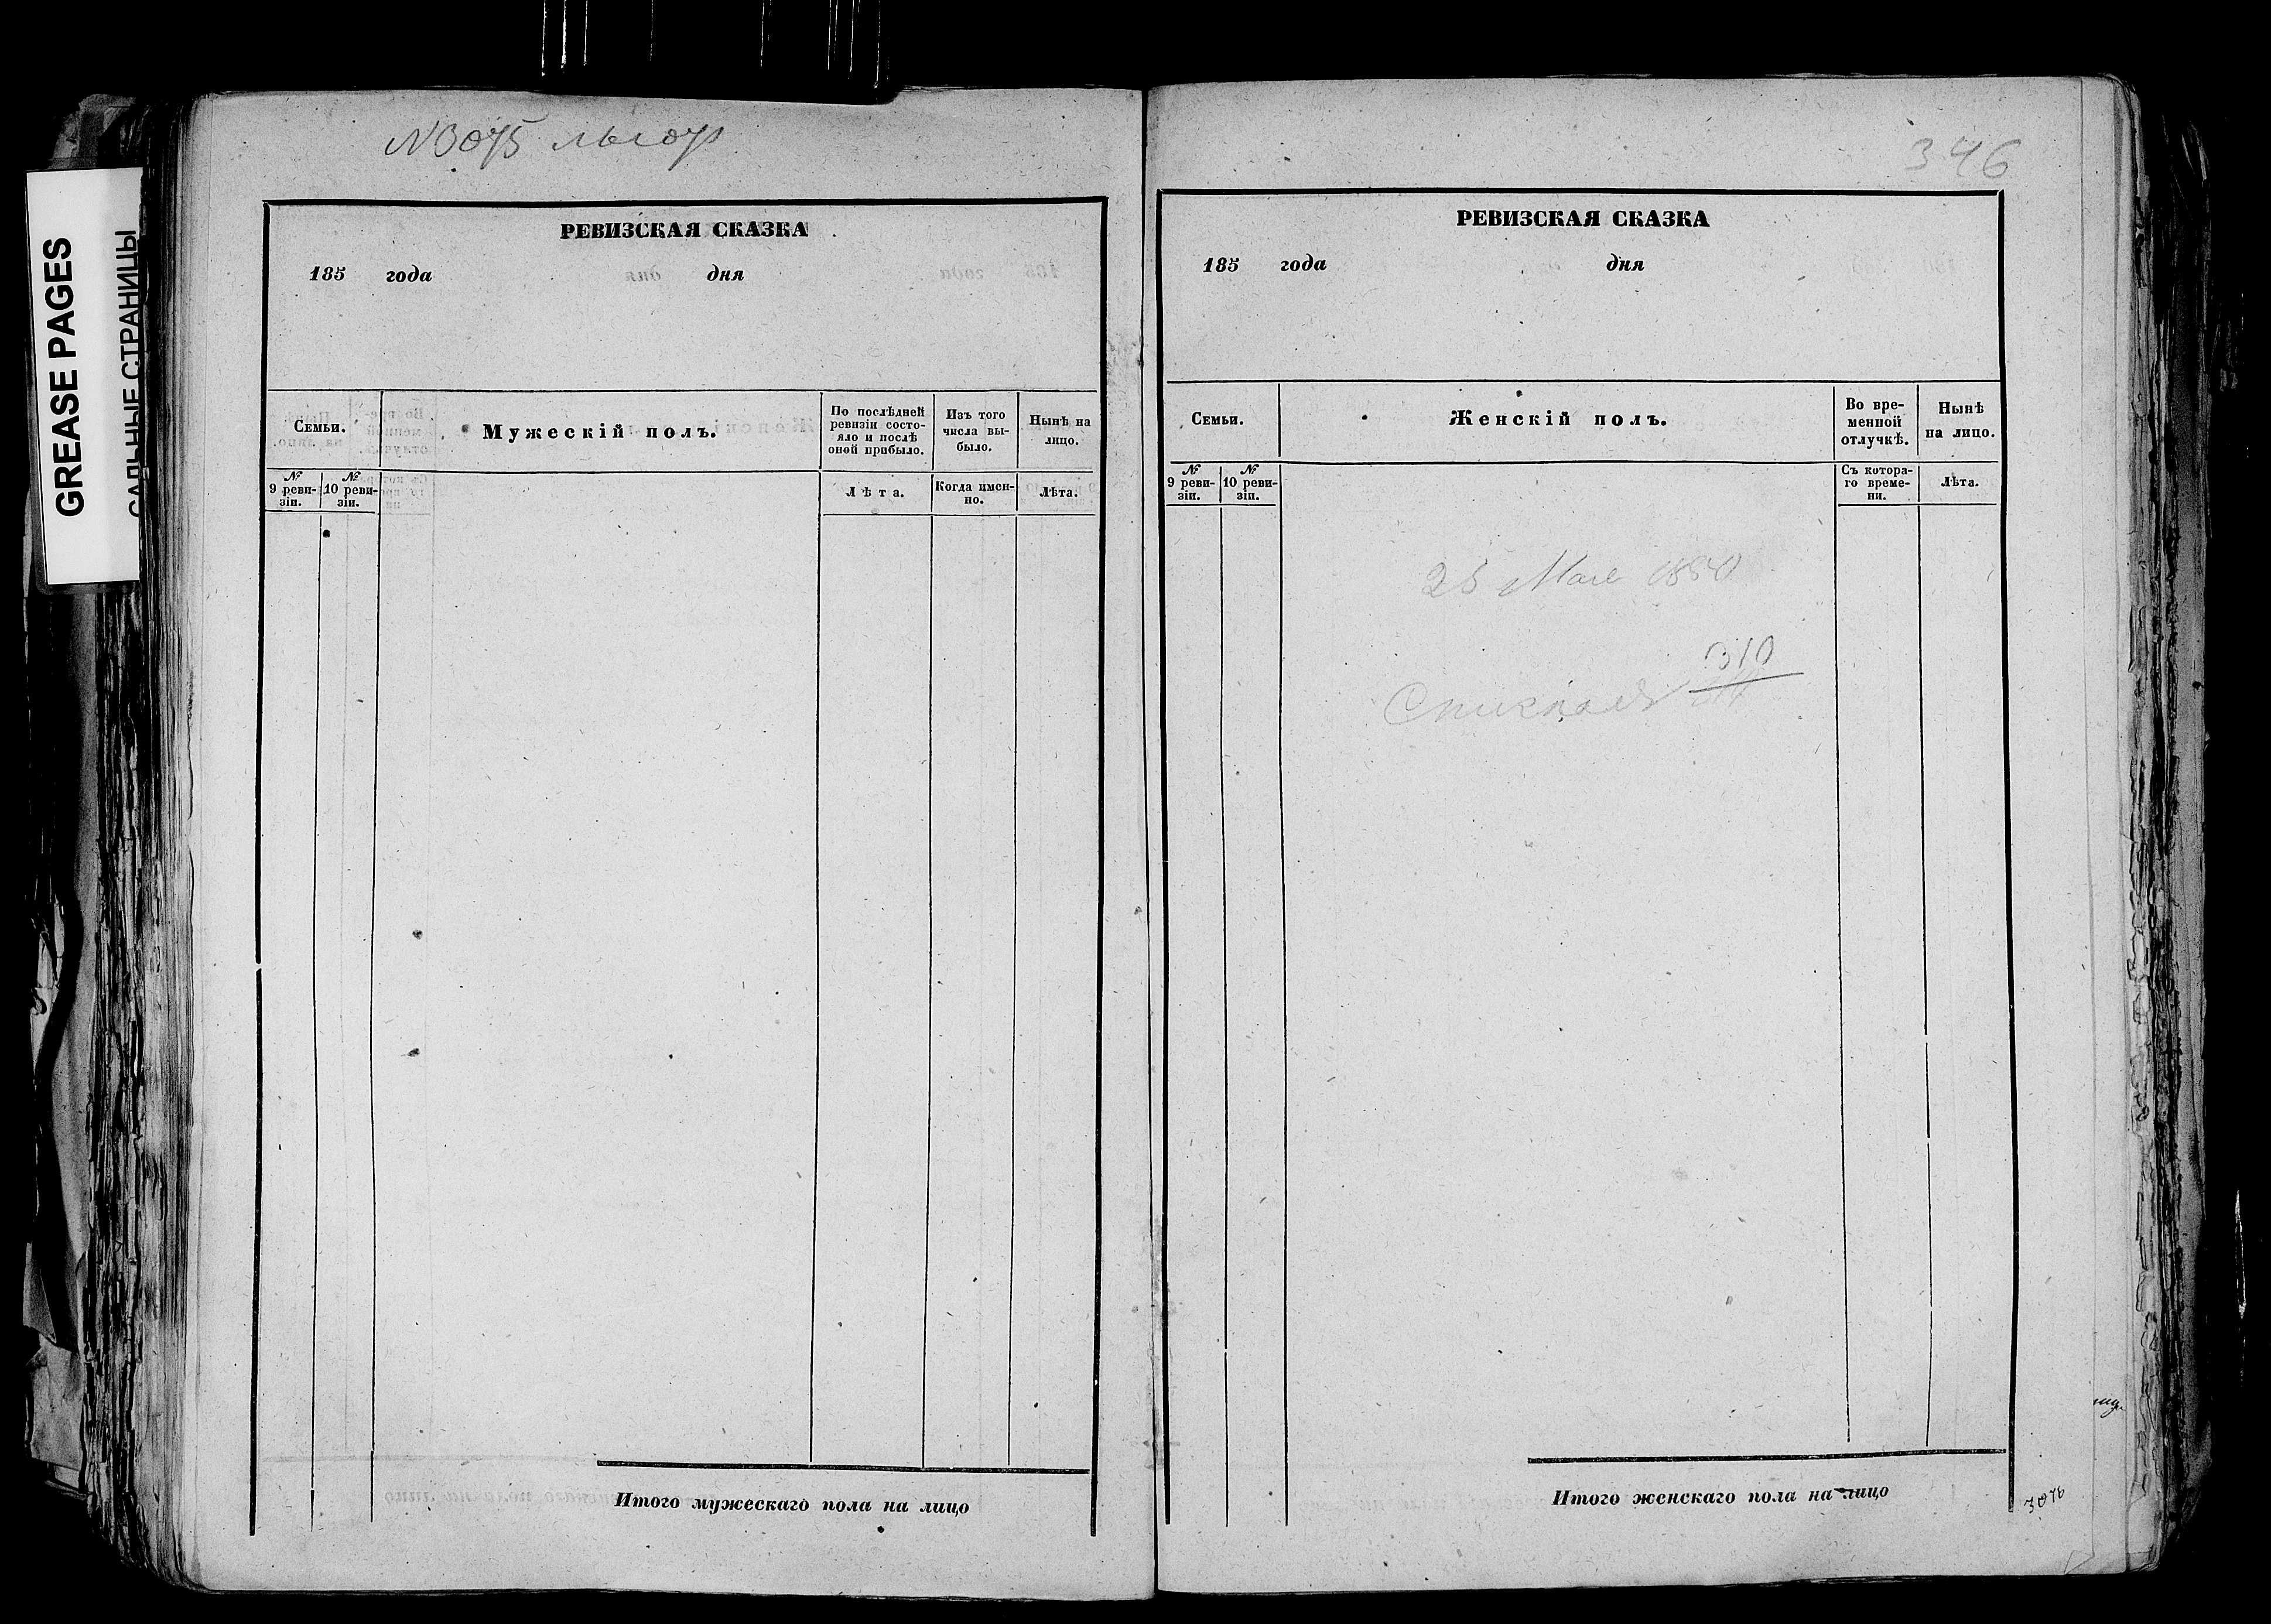 GREASE PAGES
САЛЬНЫЕ СТРАНИЦЫ
N3075
РЕВИЗСКАЯ СКАЗКА
185 года дня
Семьи.
Мужескій полъ.
По послѣдней ревизіи состо-
яло и послѣ
оной прибыло.
Изъ того
числа вы-
было.
Нынѣ на
лицо.
№
9 реви-
зіи.
№
10 реви-
зіи.
Лѣта.
Когда имен-
но.
Лѣта.
Итого мужескаго пола на лицо
346
РЕВИЗСКАЯ СКАЗКА
185 года дня
Семьи.
Женскій полъ.
Во вре-
менной
отлучкѣ.
Нынѣ
на лицо.
№
9 реви-
зіи.
№
10 реви-
зіи.
Съ котора-
го време-
ни.
Лѣта.
25
310
Итого женскаго пола на лицо
3076